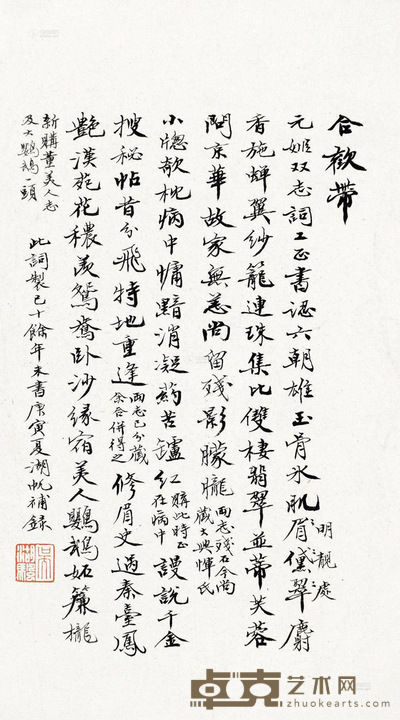 合歡帶
元姬双志詞工正書認六朝雄玉骨冰肌眉黛翠麝
明靚處
香施蟬翼紗籠連珠集比雙棲翡翠並蒂芙蓉
問京華故家無恙尚留殘影朦朧
兩志殘石今尚
藏大興惲氏
小窗欹枕病中慵黯消凝药苦鑪紅
購此時正
在病中
謾說千金
搜秘帖昔分飛特地重逢
兩志已分藏
余合併得之
修眉史過秦臺鳳
艷漢苑花穠羨鴛鴦臥沙緣宿美人鸚鵡妬簾櫳
新購董美人志
及大鸚鵡頭
此詞製已十餘年未書庚寅夏湖帆補錄
卓克艺术网
www.zhuokearts.com